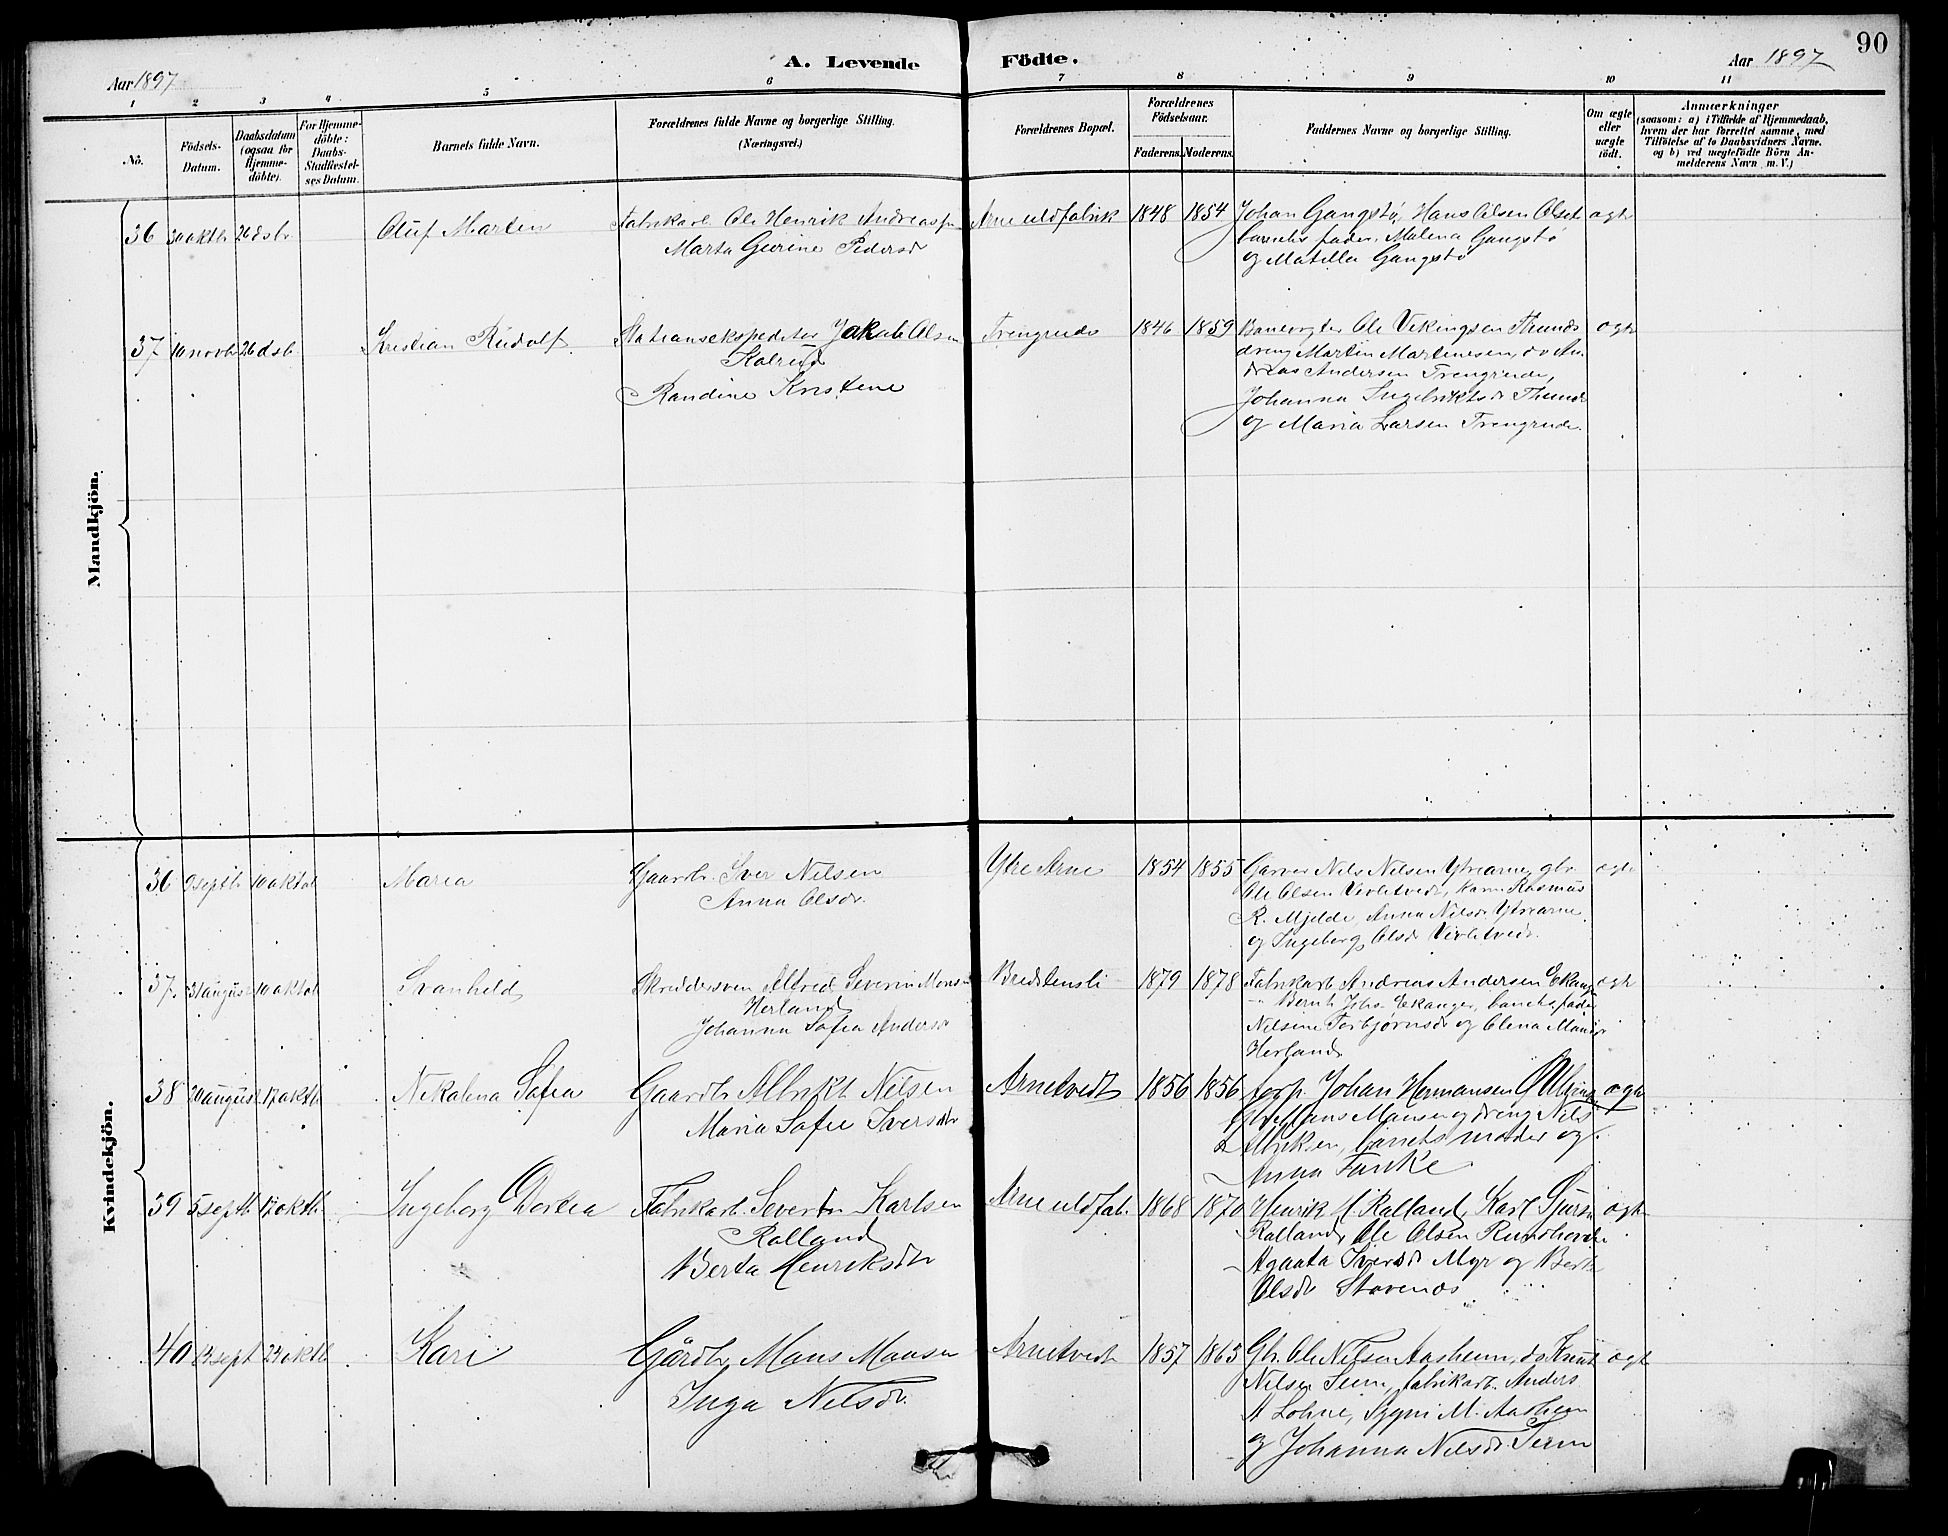 90
A. Levende Födte.
Aar 1897
Aar 1897
1 2 3 4 5 6 7 8 9 10 11
No.
Födsels-
Datum.
Daabsdatum
(ogsaa for
Hjemme-
döbte).
For Hjemme-
döbte:
Daabs-
Stadfæstel-
ses Datum.
Barnets fulde Navn.
Forældrenes fulde Navne og borgerlige Stilling.
(Næringsvei.)
Forældrenes Bopæl.
Forældrenes
Födselsaar.
Faderens. Moderens.
Faddernes Navne og borgerlige Stilling.
Om ægte
eller
uægte
födt.
Anmærkninger
(saasom: a) i Tilfælde af Hjemmedaab,
hvem der har forrettet samme, med
Tilföielse af to Daabsvidners Navne.
og b) ved uægtefödte Börn An-
melderens Navn m. V.)
Mandkjön.
36 30 oktb 26 dsb Oluf Martin
Fabrikarb. Ole Henrik Andreassn
Marta Gurine Pedersd
Arne uldfabrik 1848 1854
Johan Gangstø, Hans Olsen Olset
barnets fader, Malena Gangstø
og Matilla Gangstø
ægte
37 10 novb 26 dsb Kristian Rudolf
Stationsekspeditør Jakob Olsen
Kalrud
Randine Kristene
Trengreid 1846 1859
Banevogter Ole Vikingsen Thunes
dreng Martin Martinesen, do An-
dreas Andersen Trengreide,
Johanna Ingebriktsd Thunes
og Maria Larsen Trengreide.
ægte
Kvindekjön.
36 9 septb 10 oktob Maria
Gaardb. Iver Nilsen
Anna Olsdr.
Ytre Arne 1854 1855
Garver Nils Nilsen Ytrearne, gbr
Ole Olsen Virletveds, Rasmus
R. Mjelde Anna Nilsd Ytrearne
og Ingeborg Olsd Virletveds.
ægte
37. 31 august 10 oktob Svanhild
Skreddersven Alfred Severin Monsn
Herland
Johanna Sofia Andersd
Bredstensli 1879 1878
Fabrikarb Andreas Andersen Ekanger
Bernt Johs Ekanger, barnets fader
Nilsine Torbjørnsd og Olena Monsdr
Herland
ægte
38 20 august 17 oktb Nikolena Sofia
Gaardb Albrikt Nilsen
Maria Sofie Iversdtr
Arnetvedt 1856 1856
forp. Johan Hermansen
Mons Monsen og dreng Nils
Albriksen, barnets moder og
Anna Funke
ægte
39 5 septb 17 oktb Ingeborg Dortea
Fabrikarb. Severin Karlsen
Rolland
Berta Henriksdr
Arne uldfab. 1868 1870
Henrik H Rolland, Karl Sjursn
Rolland, Ole Olsen Rundhovde
Agaata Iversd Myr og Berta
Olsdr Stavenes
ægte
40 14 sept 24 oktb Kari
Gårdb. Mons Monsen
Inga Nilsdr.
Arnetvedt 1857 1863
Gb. Ole Nilsen Aasheim, do Knut
Nilsen Seim, fabrikarb. Anders
A Lohne, Sygni M. Aasheim
og Johanna Nilsdr Seim
ægte